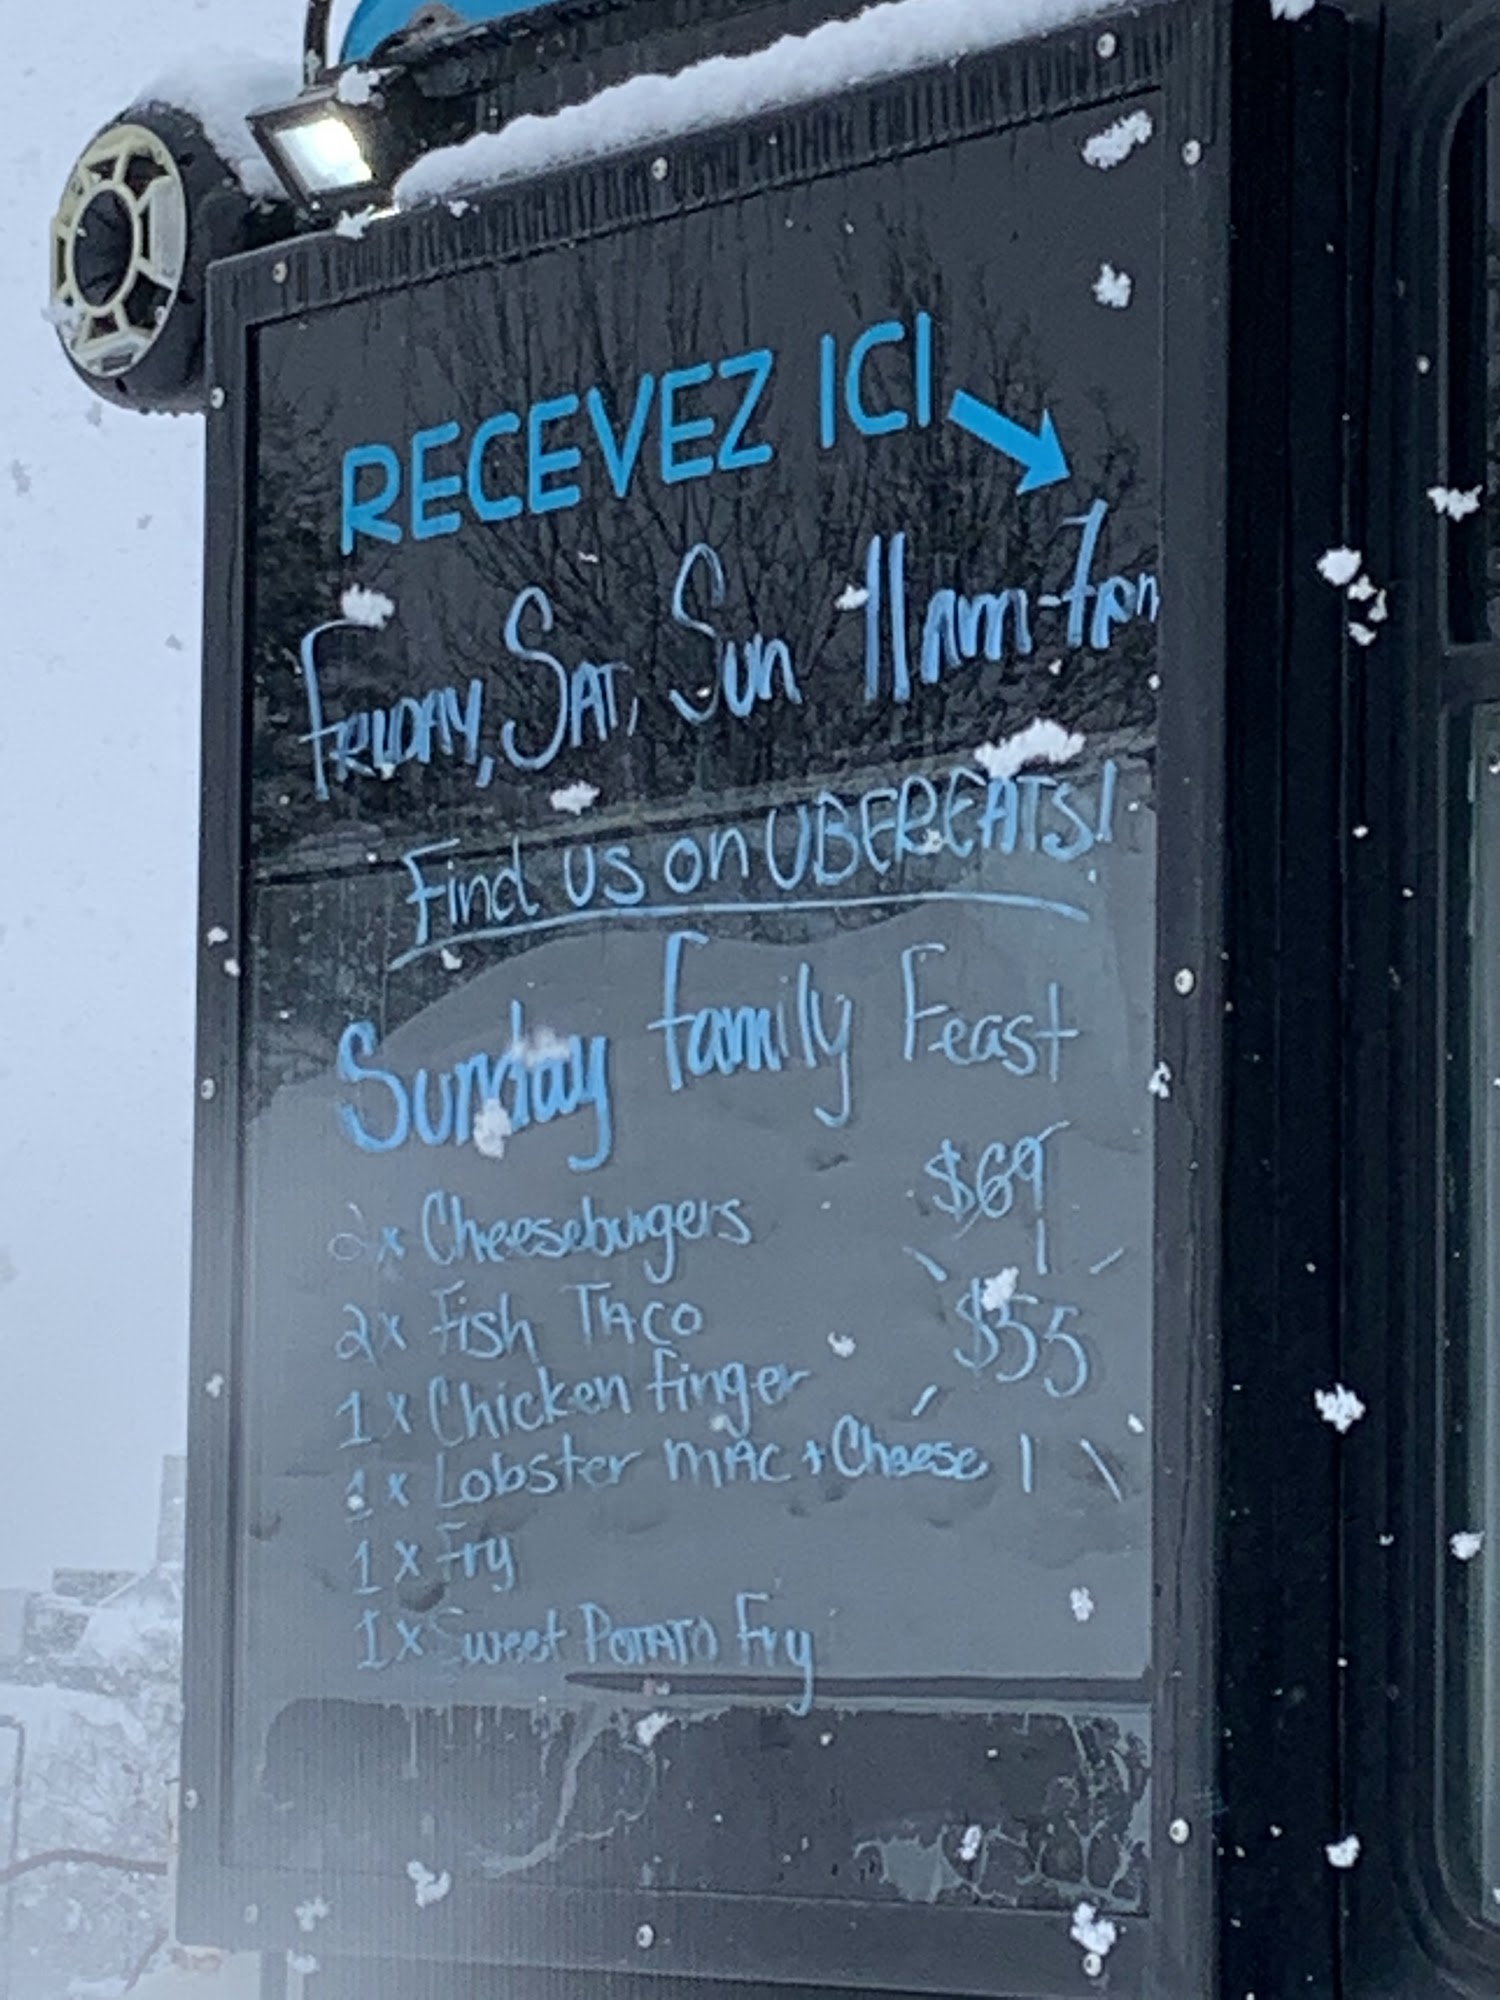 RECEVEZ ICI
FRIDAY, SAT, Sun 11am-7pm
Find us on UBEREATS!
Sunday Family Feast
$69
2x Cheeseburgers
2x Fish TACO
$55
1x Chicken finger
1x Lobster MAC + Cheese
1x Fry
1x Sweet POTATO Fry